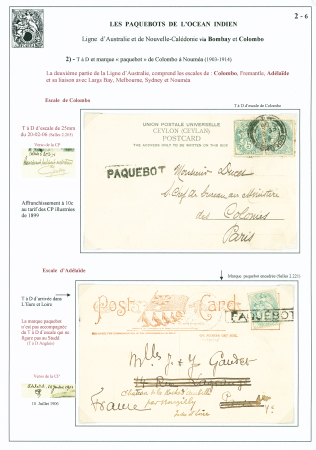 2 - 6
LES PAQUEBOTS DE L'OCEAN INDIEN
Ligne d'Australie et de Nouvelle-Calédonie via Bombay et Colombo
2) - T à D et marque « paquebot » de Colombo à Nouméa (1903-1914)
La deuxième partie de la Ligne d'Australie, comprend les escales de : Colombo, Fremantle, Adélaïde
et sa liaison avec Largs Bay, Melbourne, Sydney et Nouméa
Escale de Colombo
T à D d'escale de Colombo
T à D d'escale de 25mm
du 20-02-06
Verso de la CP
UNION POSTALE UNIVERSELLE
CEYLON (CEYLAN)
POSTCARD
THE ADDRESS ONLY TO BE WRITTEN ON THIS SIDE
PAQUEBOT
Monsieur Ducos
au Ministère
des Colonies
Paris
Affranchissement à 10c
au tarif des CP illustrées
de 1899
Escale d'Adélaïde
Marque paquebot encadrée (Salles 2.221)
T à D d'arrivée dans
L'Eure et Loire
Post Card
PAQUEBOT
La marque paquebot
n'est pas accompagnée
du T à D d'escale qui ne
figure pas au Steidl
Verso de la CP
18 Juillet 1904
Mlles J. & Y. Gaudet
par Nouzilly
Indre et Loire
France